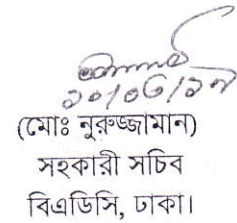 ১০/০৬/১৭
(মোঃ নুরুজ্জামান)
সহকারী সচিব
বিএডিসি, ঢাকা।